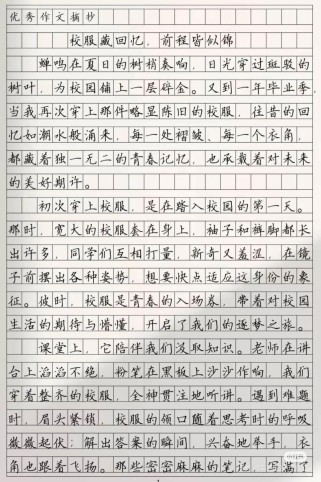 优秀作文摘抄
校服藏回忆，前程皆似锦
蝉鸣在夏日的树梢奏响，日光穿过斑驳的
树叶，为校园铺上一层碎金。又到一年毕业季，
当我再次穿上那件略显陈旧的校服，往昔的回
忆如潮水般涌来，每一处褶皱、每一个衣角，
都藏着独一无二的青春记忆，也承载着对未来
的美好期许。
初次穿上校服，是在踏入校园的第一天。
那时，宽大的校服套在身上，袖子和裤脚都长
出许多，同学们互相打量，新奇又羞涩，在镜
子前摆出各种姿势，想要快点适应这身份的象
征。彼时，校服是青春的入场券，带着对校园
生活的期待与懵懂，开启了我们的逐梦之旅。
课堂上，它陪伴我们汲取知识。老师在讲
台上滔滔不绝，粉笔在黑板上沙沙作响，我们
穿着整齐的校服，全神贯注地听讲。遇到难题
时，眉头紧锁，校服的领口随着思考时的呼吸
微微起伏；解出答案的瞬间，兴奋地举手，衣
角也跟着飞扬。那些密密麻麻的笔记，写满了